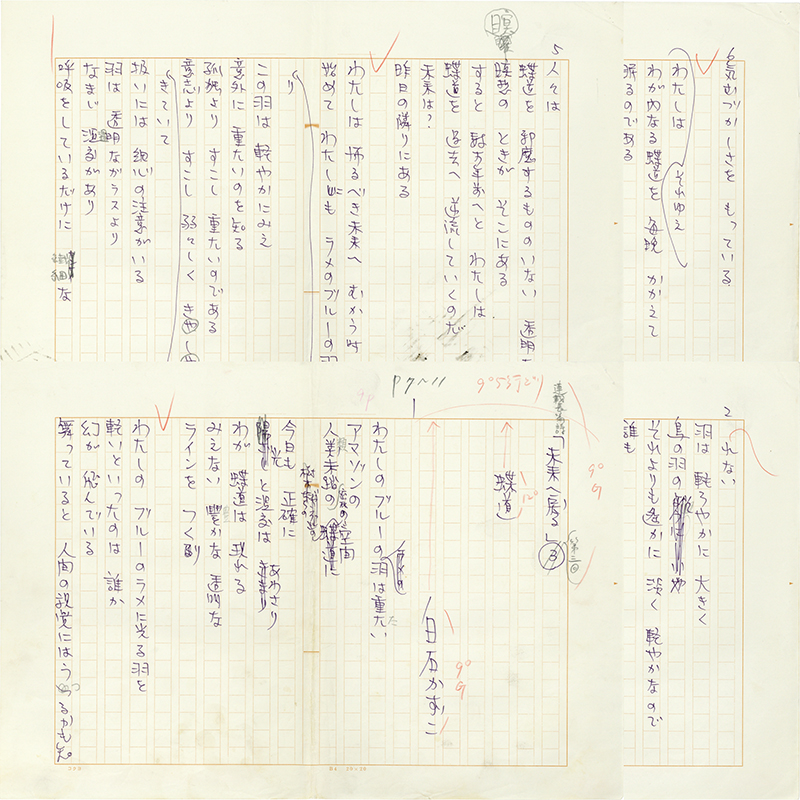 6
気むづかしさを もっている
わたしは それゆえ
わが内なる蝶道を 毎晩 かかえて
眠るのである
5
人々は
蝶道を 邪魔するもののいない 透明な
瞑想の ときが そこにある
瞑
すると 数万年前へと わたしは
蝶道を 過去へ 逆流していくのだ
未来は?
昨日の隣りにある
わたしは 怖るべき未来へ むかう時
始めて わたしにも ラメのブルーの羽
り
この羽は 軽やかにみえ
意外に 重たいのを知る
孤独より すこし 重たいのである
意志より すこし 弱々しく
きていて
扱いには 細心の注意がいる
羽は 透明なガラスより
なまじ 温度があり
呼吸をしているだけに な
2
れない
羽は 軽ろやかに 大きく
鳥の羽の
それよりも遙かに 淡く 軽やかなので
誰も
P7〜11
連載長篇詩
「未来へ戻る」③
第三回
蝶道
白石かずこ
ラメの
わたしのブルーの羽は重たい
アマゾンの
人類未踏の 空間
今日も 正確に
光と温度は あわさり
わが 蝶道は 現れる
みえない 豊かな 透明な
ラインを つくる
わたしの ブルーのラメに光る羽を
軽いといったのは 誰か
幻が 飛んでいる
舞っていると 人間の視覚にはうつるかも知